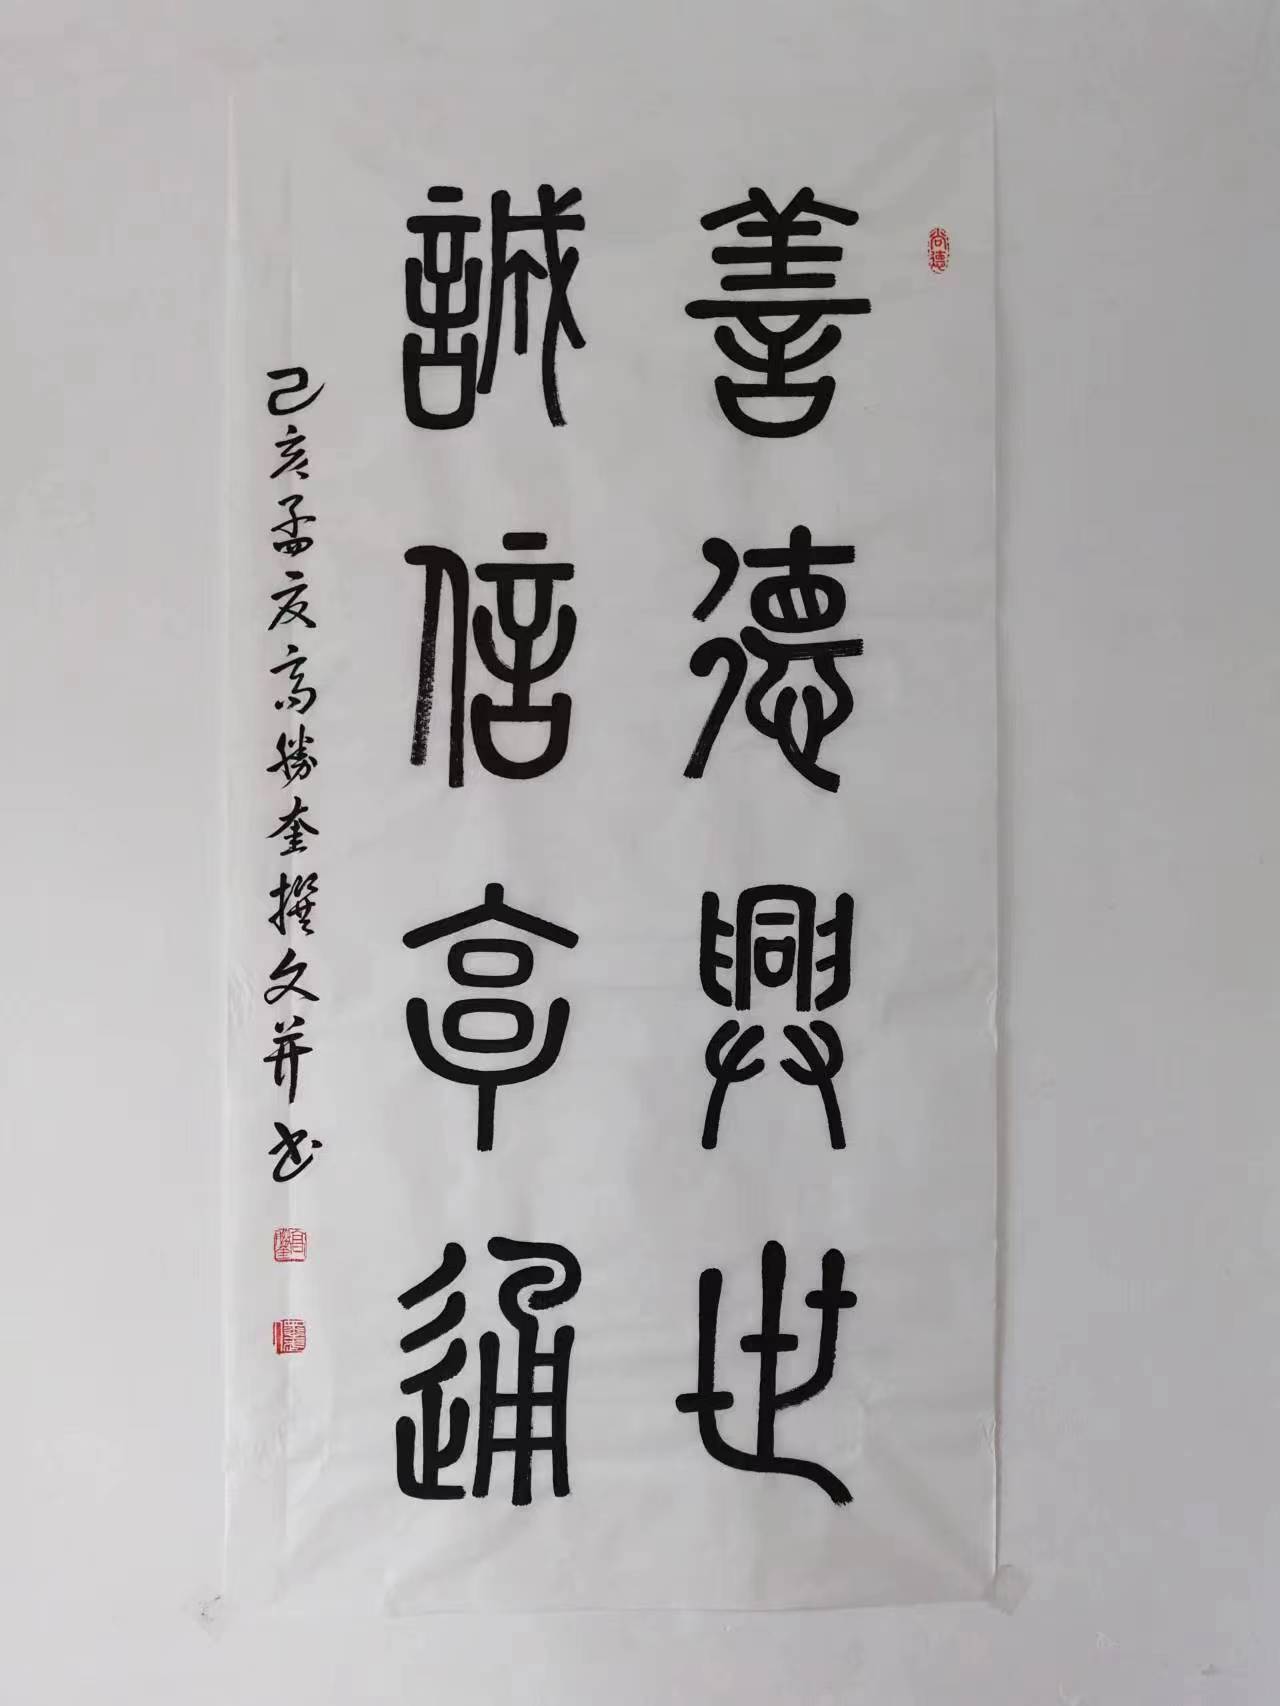 善德興世
誠信亨通
己亥孟夏高勝奎撰文并书
尚德